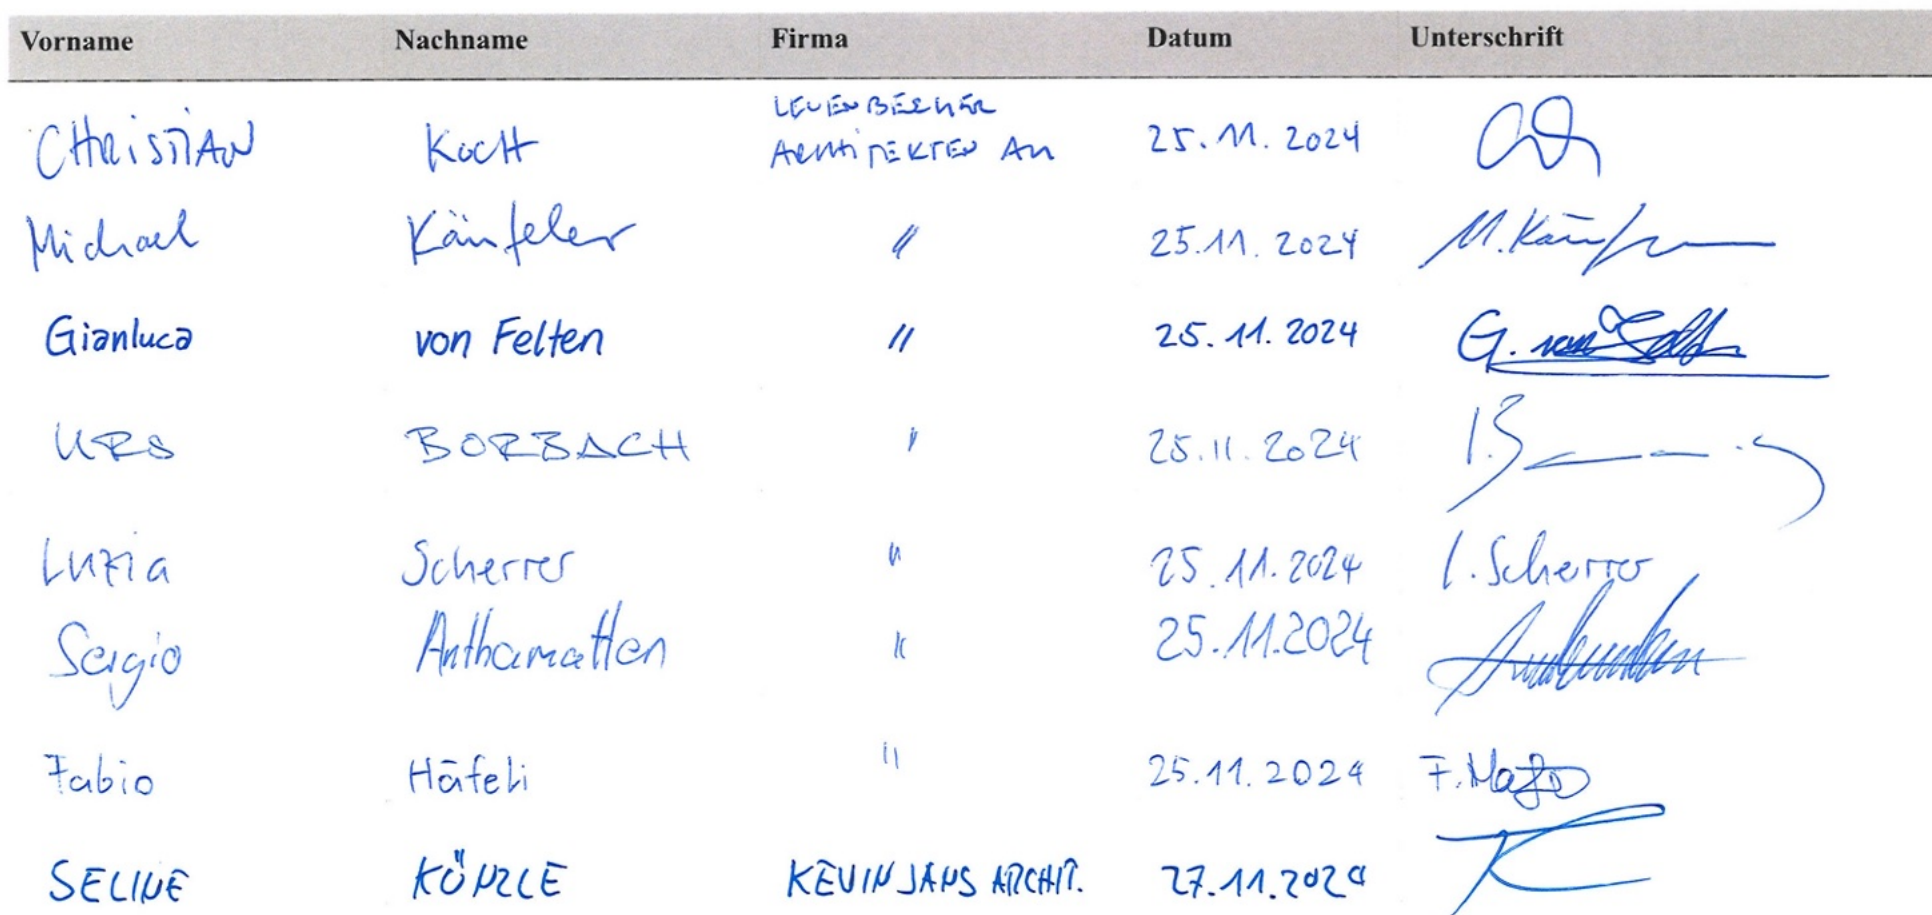 Vorname Nachname Firma Datum Unterschrift
LEUENBERGER
CHRISTIAN KOCH ARCHITEKTEN AG 25.11.2024
Michael Känfeler " 25.11.2024 M. Känf
Gianluca von Felten " 25.11.2024 G. von Felten
URS BORBACH " 25.11.2024
Luzia Scherrer " 25.11.2024 l. Scherrer
Sergio Anthamatten " 25.11.2024 Anthamatten
Fabio Häfeli " 25.11.2024 F. Häfeli
SELINE KÜNZLE KEVIN JANS ARCHIT. 27.11.2024